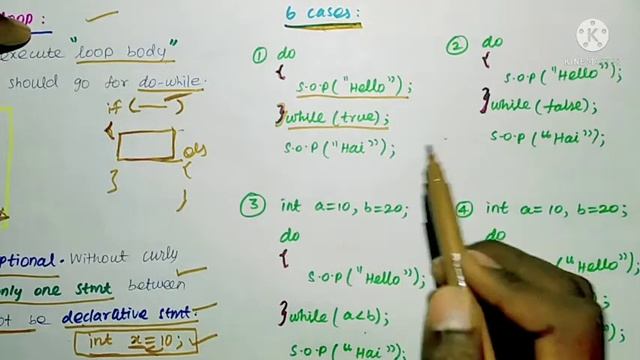 loop :
execute "loop body"
should go for do-while.
if (
}
ptional. Without curly
only one stmt between
ot be declarative stmt.
int x=10;
6 cases:
① do
{
S.O.P("Hello");
}while(true);
S.O.P("Hai");
② do
{
S.O.P("Hello");
}while(false);
S.O.P("Hai");
③ int a=10, b=20;
do
{
S.O.P("Hello");
}while(a<b);
S.O.P("Hai");
④ int a=10, b=20;
do
Hello");
KINEMASTER